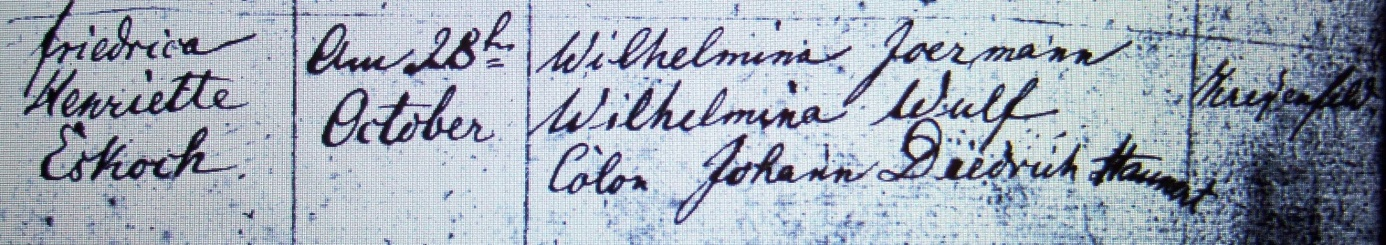 Friedrica
Henriette
Eskoch.
Am 28t.
October
Wilhelmina Joermann
Wilhelmina Wulf
Colon Johann Diedrich